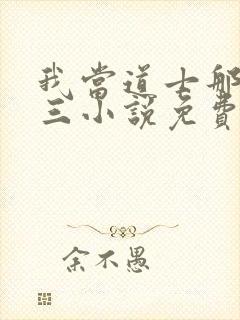 我當道士那
三小說免費
余不愚